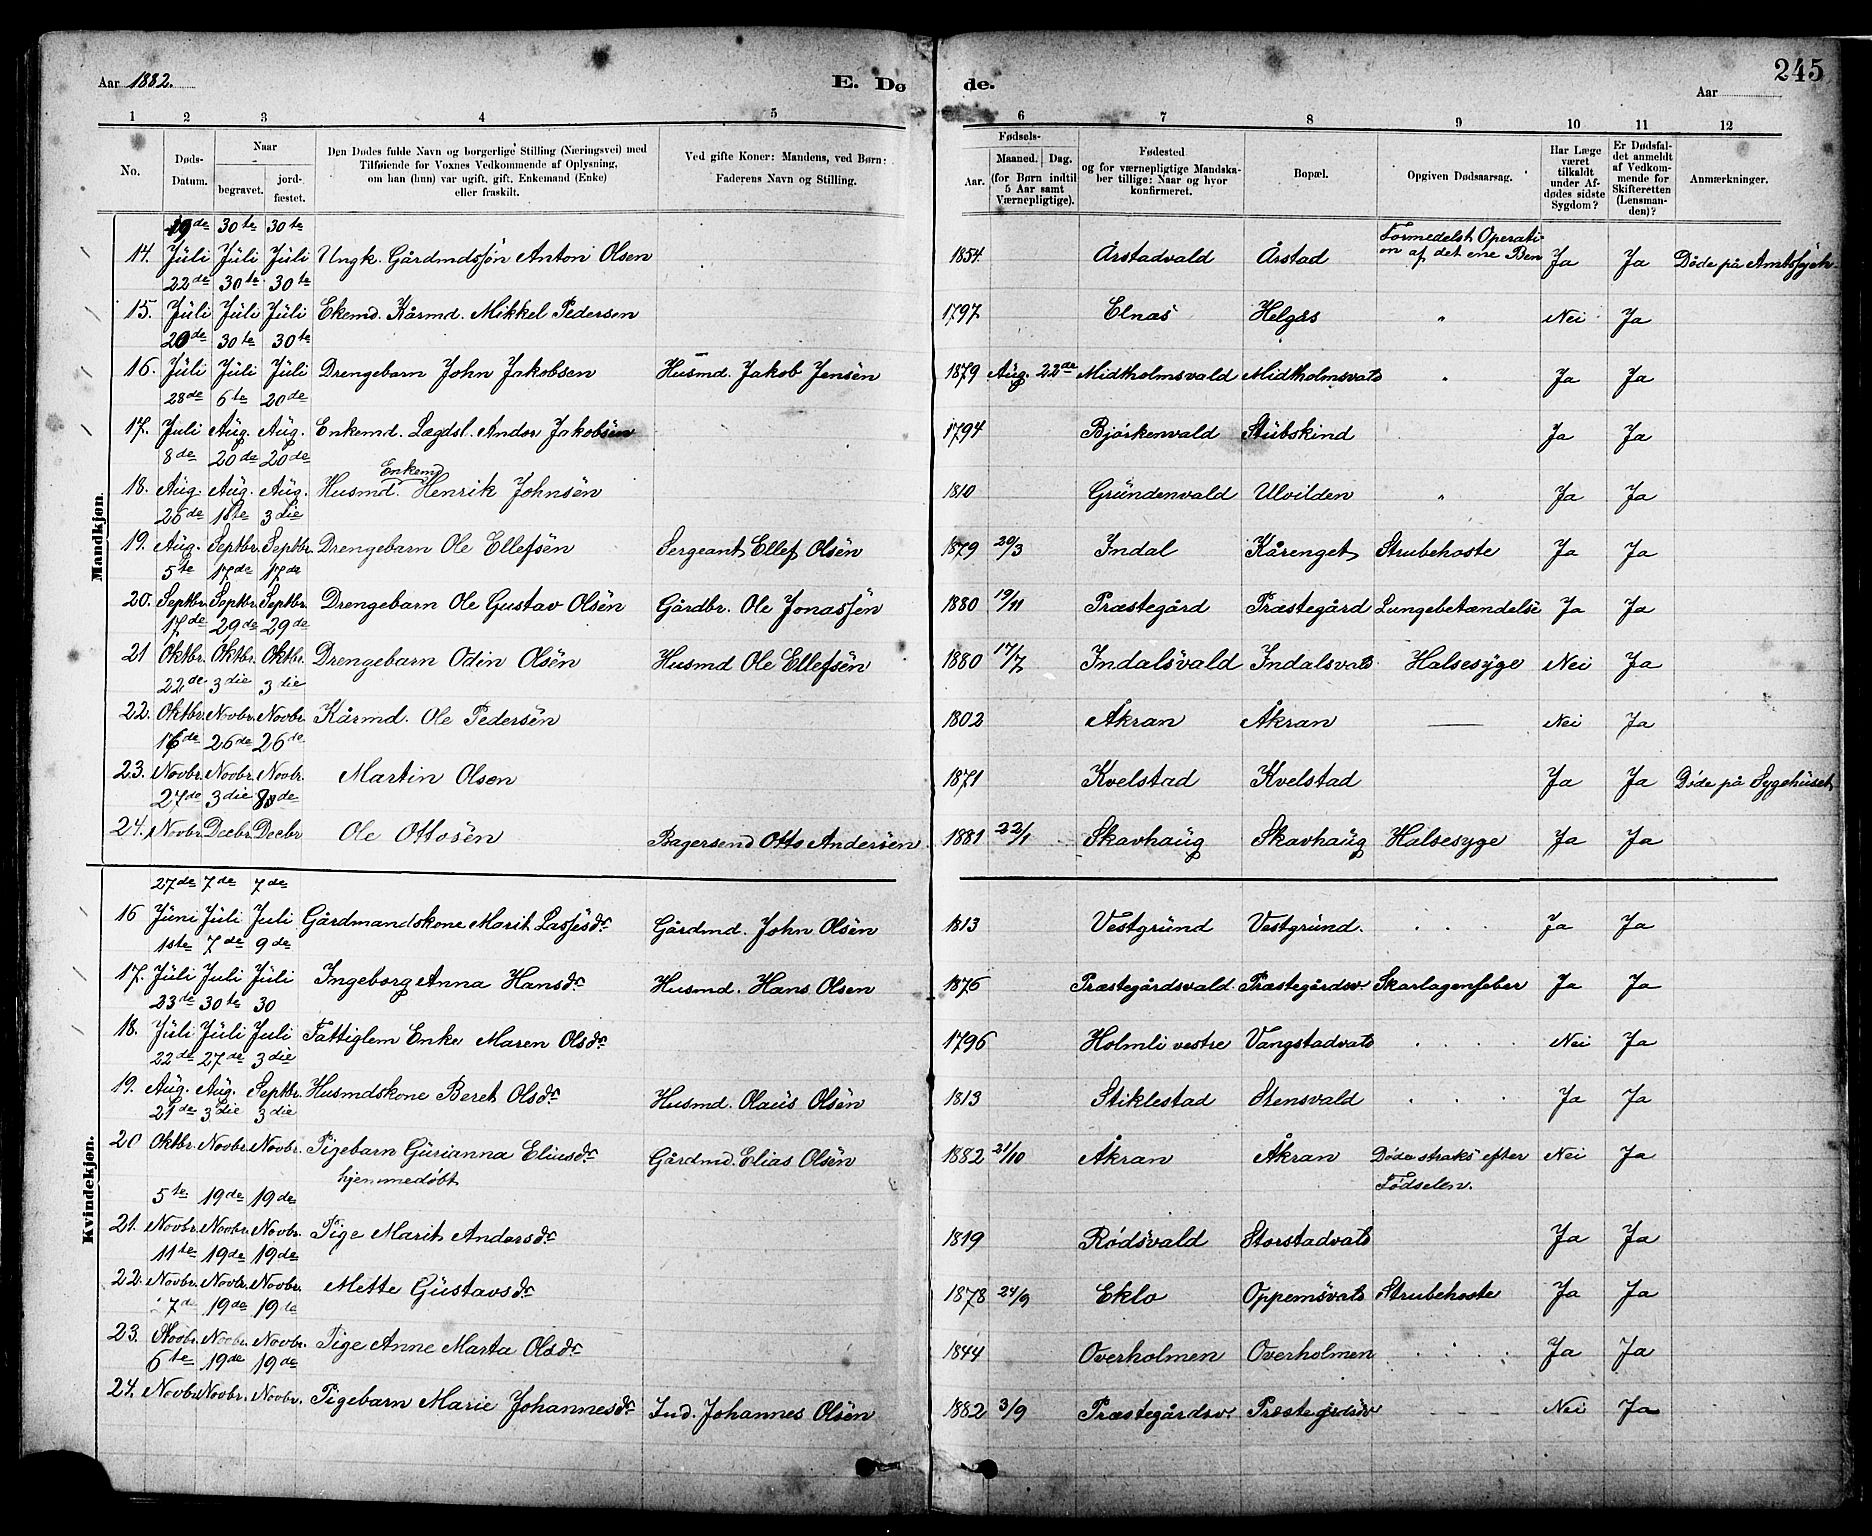 Aar 1882. E. Dø de. Aar 245
1 2 3 4 5 6 7 8 9 10 11 12
No. Døds-Datum. Naar begravet. jordfæstet. Den Dødes fulde Navn og borgerlige Stilling (Næringsvei) med Tilføiende for Voxnes Vedkommende af Oplysning, om han (hun) var ugift, gift, Enkemand (Enke) eller fraskilt. Ved gifte Koner: Mandens, ved Børn: Faderens Navn og Stilling. Fødsels- Aar. Maaned. Dag. (for Børn indtil 5 Aar samt Værnepligtige). Fødested og for værnepligtige Mandskaber tillige: Naar og hvor konfirmeret. Bopæl. Opgiven Dødsaarsag. Har Læge været tilkaldt under Afdødes sidste Sygdom? Er Dødsfaldet anmeldt af Vedkommende for Skifteretten (Lensmanden)? Anmærkninger.
Mandkjøn.
19de 30te 30te
14. Juli Juli Juli Ungk. Gårdmdssøn Anton Olsen 1854 Årstadvald Årstad Formedelst Operation af det ene Ben Ja Ja Døde på Amtssygeh.
22de 30te 30te
15. Juli Juli Juli Ekemd. Kårmd. Mikkel Pedersen 1797 Elnæs Helgås " Nei Ja
20de 30te 30te
16. Juli Juli Juli Drengebarn John Jakobsen Husmd. Jakob Jensen 1879 Aug. 22de Midtholmsvald Midtholmsvald " Ja Ja
28de 6te 20de
17. Juli Aug. Aug. Enkemd. Lægdsl. Andor Jakobsen 1794 Bjørkenvald Stubskind Ja Ja
8de 20de 20de
18. Aug. Aug. Aug. Husmd. Enkemd Henrik Johnsen 1810 Grundenvald Ulvilden " Ja Ja
26de 1ste 3die
19. Aug. Septbr. Septbr. Drengebarn Ole Ellefsen Sergeant Ellef Olsen 1879 20/3 Indal Kårenget Strubehoste Ja Ja
5te 17de 17de
20. Septbr. Septbr. Septbr. Drengebarn Ole Gustav Olsen Gårdbr. Ole Jonassen 1880 19/11 Præstegård Præstegård Lungebetændelse Ja Ja
17de 29de 29de
21 Oktbr. Oktbr. Oktbr. Drengebarn Odin Olsen Husmd Ole Ellefsen 1880 17/7 Indalsvald Indalsvald Halsesyge Nei Ja
22de 3die 3die
22. Oktbr. Novbr. Novbr. Kårmd. Ole Pedersen 1802 Åkran Åkran — Nei Ja
16de 26de 26de
23. Novbr. Novbr. Novbr. Martin Olsen 1871 Kvelstad Kvelstad Ja Ja Døde på Sygehuset
27de 3die
24. Novbr. Decbr. Decbr Ole Ottosen Bagersvend Otto Andersen 1881 22/1 Skavhaug Skavhaug Halsesyge Ja Ja
Kvindekjøn.
27de 7de 7de
16 Juni Juli Juli Gårdmandskone Marit Lassesdr Gårdmd. John Olsen 1813 Vestgrund Vestgrund. Ja Ja
1ste 7de 9de
17. Juli Juli Juli Ingeborg Anna Hansdr Husmd. Hans Olsen 1876 Præstegårdsvald. Præstegårdsv. Skarlagensfeber Ja Ja
23de 30te 30
18. Juli Juli Juli Fattiglem Enke Maren Olsdr 1796 Holmli vestre Vangstadvald Nei Ja
22de 27de 3die
19. Aug. Aug. Septbr. Husmdskone Beret Olsdr Husmd. Olaus Olsen 1813 Stiklestad Stensvald Ja Ja
21de 3die 3die
20 Oktbr. Novbr. Novbr. Pigebarn Gurianna Eliasdr Gårdmd. Elias Olsen 1882 21/10 Åkran Åkran Døde straks efter Nei Ja
hjemmedøbt Fødselen.
5te 19de 19de
21. Novbr. Novbr. Novbr. Pige Marit Andersdr 1819 Rødsvald Storstadvald Ja Ja
11te 19de 19de
22. Novbr. Novbr. Novbr. Mette Gustavsdr 1878 24/9 Eklo Oppemsvald Strubehoste Ja Ja
7de 19de 19de
23. Novbr. Novbr. Novbr. Pige Anne Marta Olsdr 1844 Overholmen Overholmen Ja Ja
6te 19de 19de
24. Novbr Novbr. Novbr. Pigebarn Marie Johannesdr Ind. Johannes Olsen 1882 3/9 Præstegårdsv. Præstegårdsv Nei Ja